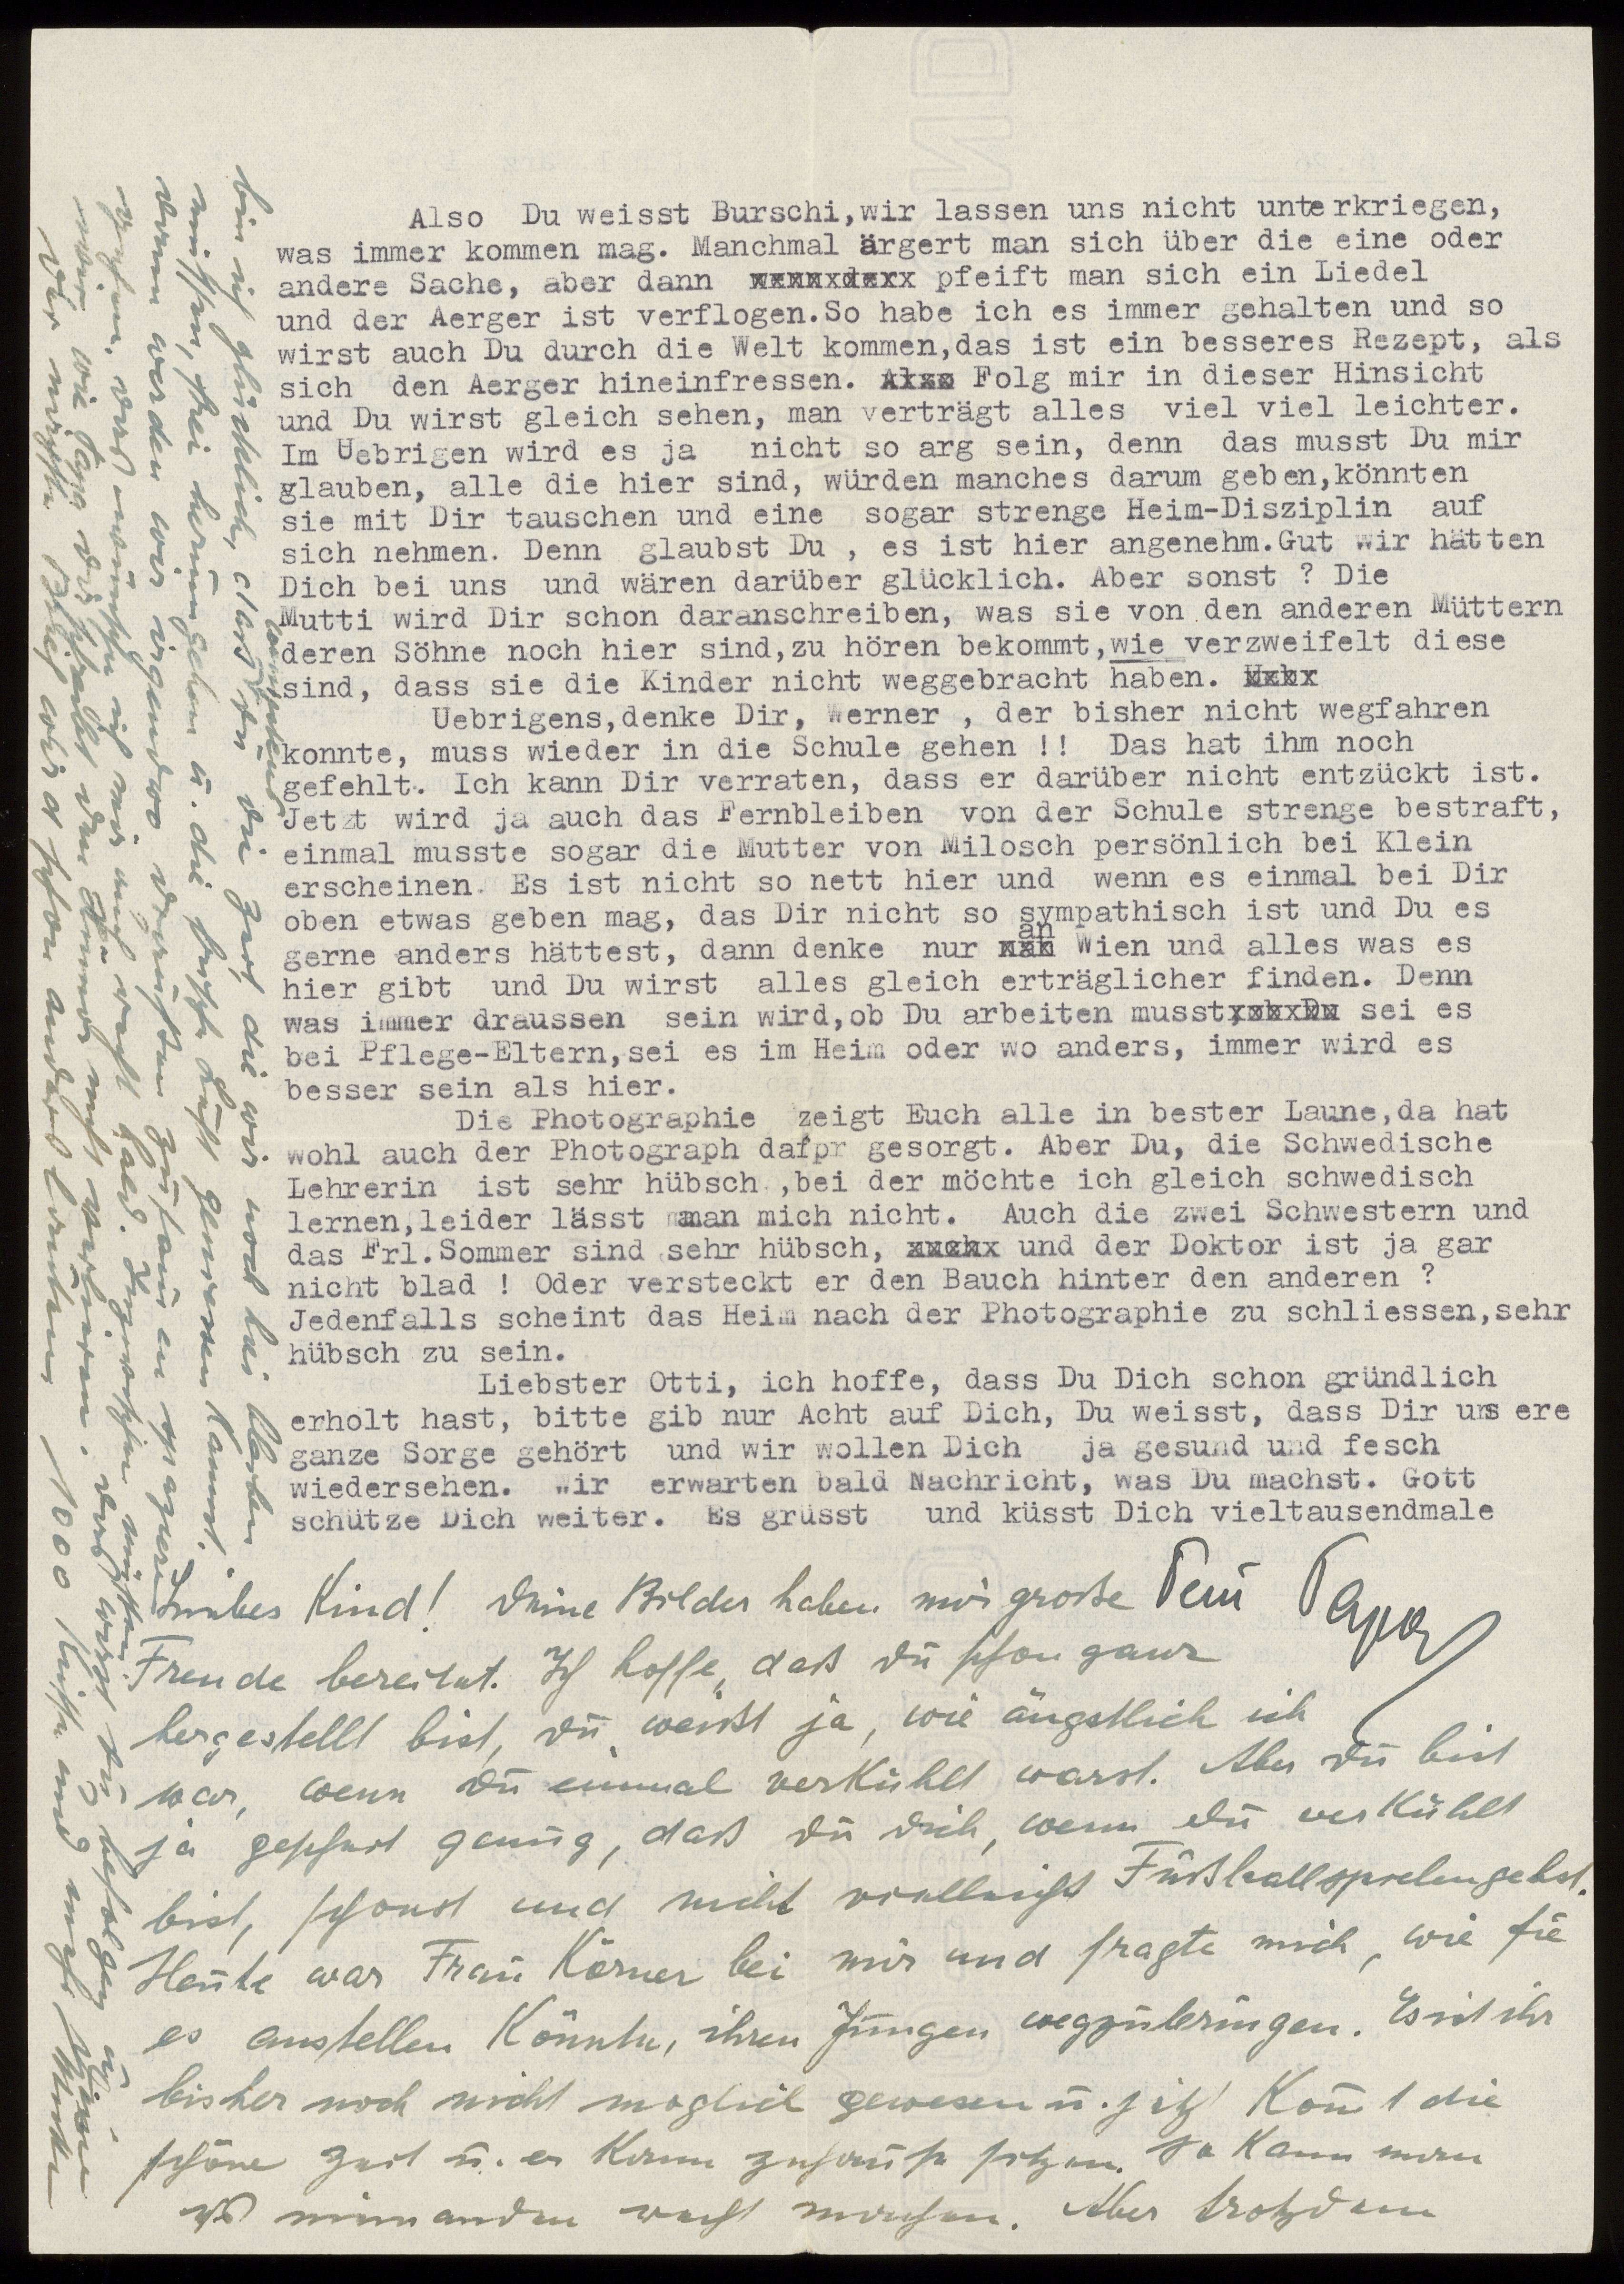 Also Du weisst Burschi,wir lassen uns nicht unterkriegen,
was immer kommen mag. Manchmal ärgert man sich über die eine oder
andere Sache, aber dann pfeift man sich ein Liedel
und der Aerger ist verflogen.So habe ich es immer gehalten und so
wirst auch Du durch die Welt kommen,das ist ein besseres Rezept, als
sich den Aerger hineinfressen. Folg mir in dieser Hinsicht
und Du wirst gleich sehen, man verträgt alles viel viel leichter.
Im Uebrigen wird es ja nicht so arg sein, denn das musst Du mir
glauben, alle die hier sind, würden manches darum geben,könnten
sie mit Dir tauschen und eine sogar strenge Heim-Disziplin auf
sich nehmen. Denn glaubst Du , es ist hier angenehm.Gut wir hätten
Dich bei uns und wären darüber glücklich. Aber sonst ? Die
Mutti wird Dir schon daranschreiben, was sie von den anderen Müttern
deren Söhne noch hier sind,zu hören bekommt,wie verzweifelt diese
sind, dass sie die Kinder nicht weggebracht haben.
Uebrigens,denke Dir, Werner , der bisher nicht wegfahren
konnte, muss wieder in die Schule gehen !! Das hat ihm noch
gefehlt. Ich kann Dir verraten, dass er darüber nicht entzückt ist.
Jetzt wird ja auch das Fernbleiben von der Schule strenge bestraft,
einmal musste sogar die Mutter von Milosch persönlich bei Klein
erscheinen. Es ist nicht so nett hier und wenn es einmal bei Dir
oben etwas geben mag, das Dir nicht so sympathisch ist und Du es
gerne anders hättest, dann denke nur an Wien und alles was es
hier gibt und Du wirst alles gleich erträglicher finden. Denn
was immer draussen sein wird,ob Du arbeiten musst sei es
bei Pflege-Eltern,sei es im Heim oder wo anders, immer wird es
besser sein als hier.
Die Photographie zeigt Euch alle in bester Laune,da hat
wohl auch der Photograph dafpr gesorgt. Aber Du, die Schwedische
Lehrerin ist sehr hübsch ,bei der möchte ich gleich schwedisch
lernen,leider lässt man mich nicht. Auch die zwei Schwestern und
das Frl.Sommer sind sehr hübsch, und der Doktor ist ja gar
nicht blad ! Oder versteckt er den Bauch hinter den anderen ?
Jedenfalls scheint das Heim nach der Photographie zu schliessen,sehr
hübsch zu sein.
Liebster Otti, ich hoffe, dass Du Dich schon gründlich
erholt hast, bitte gib nur Acht auf Dich, Du weisst, dass Dir unsere
ganze Sorge gehört und wir wollen Dich ja gesund und fesch
wiedersehen. Wir erwarten bald Nachricht, was Du machst. Gott
schütze Dich weiter. Es grüsst und küsst Dich vieltausendmale
Dein Papa
Kind! Deine Bilder haben mir große
Freude bereitet. Ich hoffe, daß du schon ganz
hergestellt bist, du weißt ja, wie ängstlich ich
war, wenn du einmal verkühlt warst. Aber du bist
ja gescheit genug, daß du dich, wenn du verkühlt
bist, schonst und nicht vielleicht Fußballspielen gehst.
Heute war Frau Körner bei mir und fragte mich, wie sie
es anstellen könnte, ihren Jungen wegzubringen. Es ist ihr
bisher noch nicht möglich gewesen u. jetzt kommt die
schöne Zeit u. er kann zuhause sitzen. So kann man
es niemanden recht machen. Aber trotzdem
bin ich glücklich, daß du die Zeit die wir noch hier bleiben
müssen, frei herumgehen u. die frische Luft genießen kannst.
Dann werden wir irgendwo
wie Papa dir schreibt den Humor nicht verlieren.
1000 Küsse